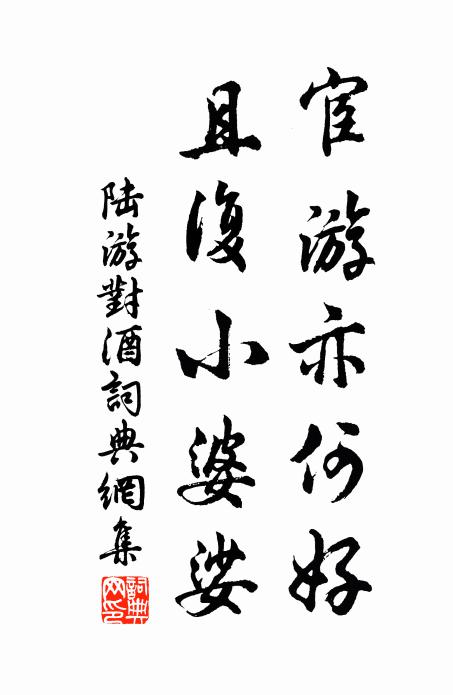 宦游亦何好
且復小婆娑
陆游對酒詞典網集
詞典網印